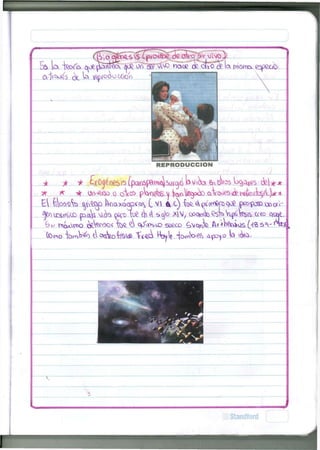 Biogénesis (proviene de otro ser vivo)
Es la teoría que plantea que un ser vivo nace de otro de la misma especie
a través de la reproducción.
REPRODUCCION
Exogénesis (panspermia) surgió la vida en otros lugares del
universo o otros planetas y han llegado a través de meteoritos
El filosofo griego Anaxágoras (VI a C) fue el primero que propuso un ori-
gen cosmico para la vida pero fue en el siglo XIV, cuando esta hipotesis creo auge.
Su máximo defensor fue el químico sueco Svante Arrhenius (1859-
como también el astrofisico Fred Hoyle, también apoyo la idea.
Standford